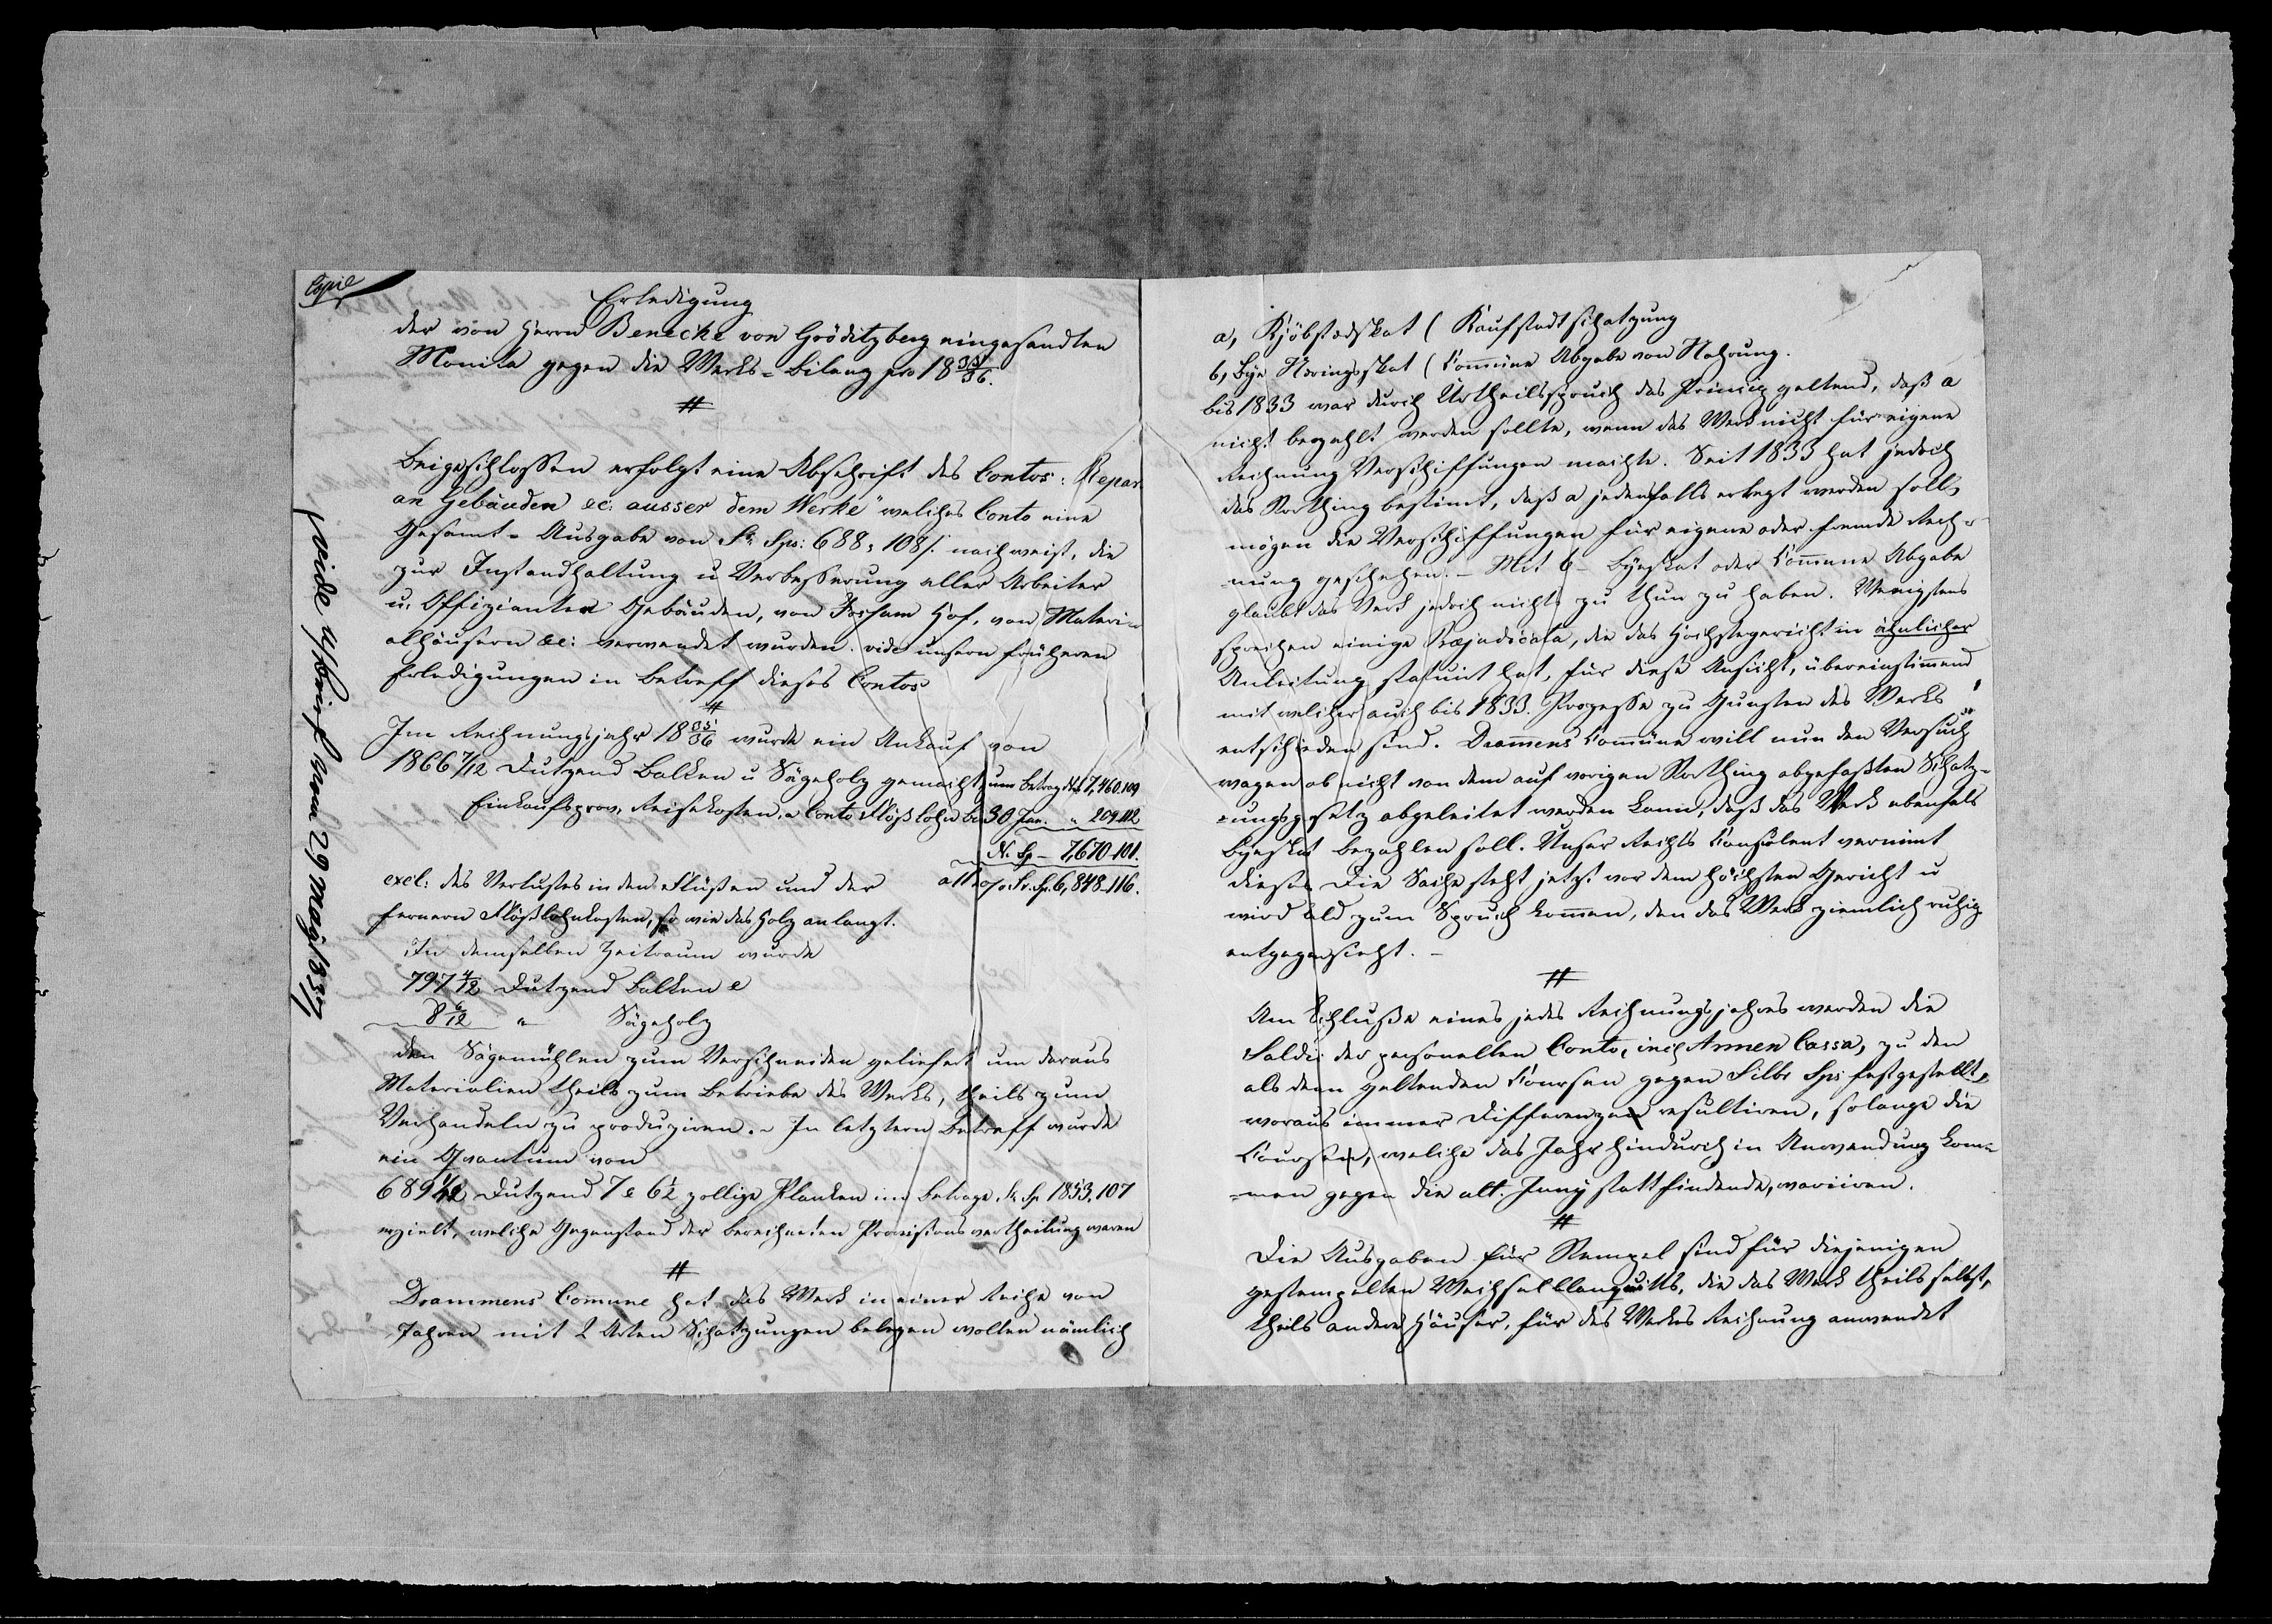 Copie
Erledigung
der von Herrn Benecke von Gröditzberg eingesandten
Monita gegen die Werks-Bilanz pro 18 35/36.
#
Beigeschlossen erfolgt eine Abschrift des Contos: Repar.
an Gebäuden &c: ausser dem Werke" welches Conto eine
Gesamt-Ausgabe von Sr. Sps: 688, 108/. nachweist, die
zur Instandhaltung u Verbesserung aller Arbeiter
u. Offizianten Gebäuden, von Fossum Hof, von Materi-
alhäusern &c: verwendet wurden. vide unsern früheren
Erledigungen in Betreff dieses Contos
#
Im Rechnungsjahr 18 35/36 wurde ein Ankauf von
1866 7/12 Dutzend Balken u Sägeholz gemacht, zum Betrag 7,460.109
Einkaufsprov, Reisekosten, a Conto Flößlohn bis 30 Jun. " 209.112
N. Sp - 7,670-101.
excl: des Verlustes in den Flüßen und der a 112 % Sr. Sp. 6,848-116.
fernern Flößlohnkosten, so wie das Holz anlangt.
In demselben Zeitraum wurde
797 4/12 Dutzend Balken &
8 6/12 " Sägeholz
den Sägemühlen zum Verschneiden geliefert um daraus
Materialien theils zum Betriebe des Werks, theils zum
Verhandeln zu produziren. - In letztern Betreff wurde
ein Quantum von
689 1/12 Dutzend 7 & 6½ zollige Planken im Betrage Sr. Sp 1853,107
erzielt, welche Gegenstand der berechneten Provisionsvertheilung waren
#
Drammens Comune hat das Werk in einer Reihe von
Jahren mit 2 Arten Schatzungen belegen wollen nämlich
(vide Schrift vom 29 May 1837)
a, Kjöbstedskat ( Kaufstadtschatzung
b, Bye Næringsskat ( Comüne Abgabe von Nahrung.
bis 1833 war durch Urtheilsspruch das Princip geltend, daß a
nicht bezahlt werden sollte, wenn das Werk nicht für eigene
Rechnung Verschiffungen machte. Seit 1833 hat jedoch
das Storthing bestimt, daß a jedenfalls erlegt werden soll,
mögen die Verschiffungen für eigene oder fremde Rech-
nung geschehen. - Mit b - Byeskat oder Comune Abgabe
glaubt das Werk jedoch nichts zu thun zu haben. Wenigstens
sprechen einige Præjudicata, die das Hochstegericht in ähnlicher
Anleitung statuirt hat, für diese Ansicht, übereinstimend
mit welcher auch bis 1833. Prozesse zu Gunsten des Werks
entschieden sind. Dramens Comüne will nun den Versuch
wagen ob nicht von dem auf vorigen Storthing abgefaßten Schatz-
ungsgesetz abgeleitet werden kann, daß das Werk ebenfals
Byeskat bezahlen soll. Unser Rechts Consulent verneint
dieses. Die Sache steht jetzt vor dem höchsten Gericht u
wird bald zum Spruch komen, den das Werk ziemlich ruhig
entgegensieht. -
#
Am Schluße eines jedes Rechnungsjahres werden die
Saldis der personellen Conto, incl Armen Cassa, zu den
als dann geltenden Coursen gegen Silbr Sps festgestellt,
woraus immer Differenzen resultiren, solange die
Coursen, welche das Jahr hindurch in Anwendung kom-
men gegen die ult. Juny stattfindende, variiren.
#
Die Ausgaben für Stempel sind für diejenigen
gestempelten Wechselblanquitts, die das Werk theils selbst,
theils andere Häuser, für des Werkes Rechnung anwendet